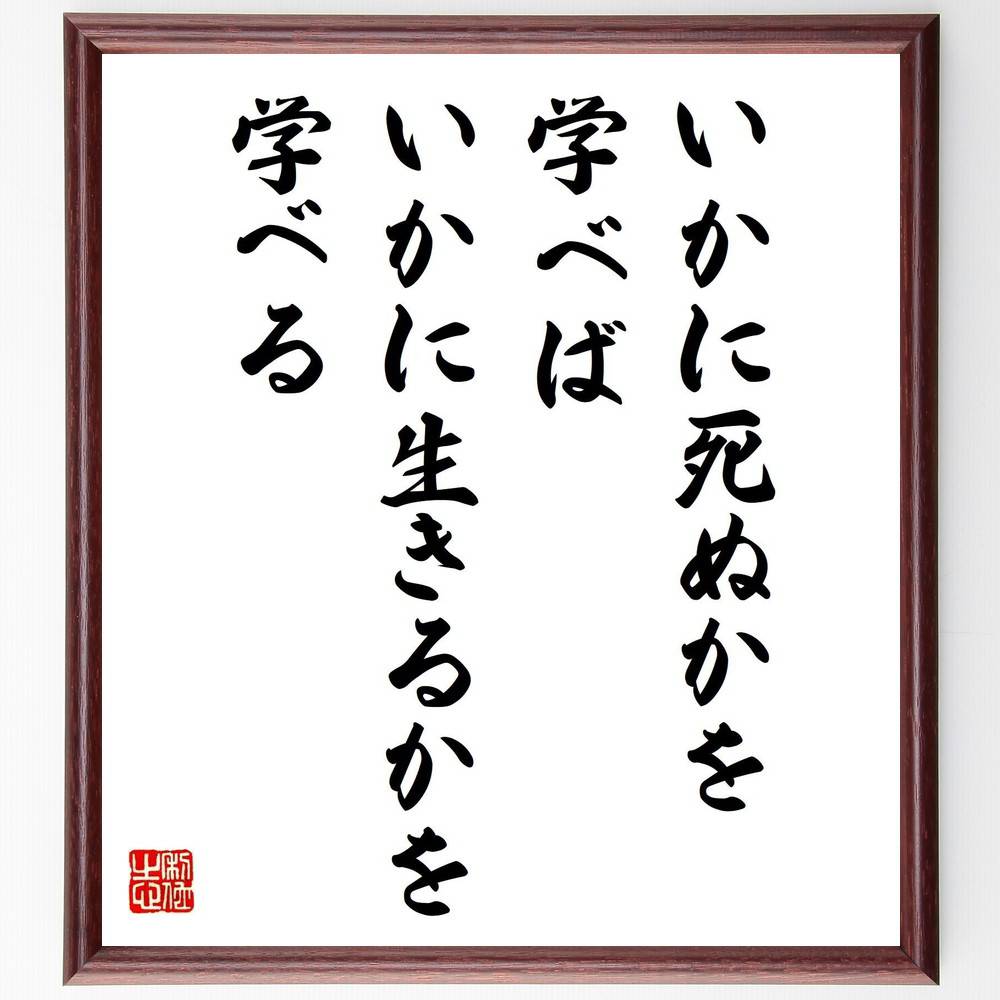 いかに死ぬかを
学べば
いかに生きるかを
学べる